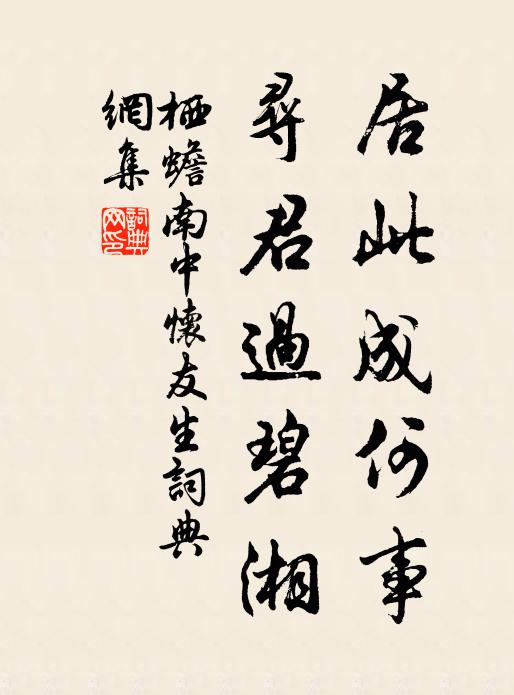 居此成何事
尋君過碧湘
栖蟾南中懷友生詞典
網集
詞典
网印